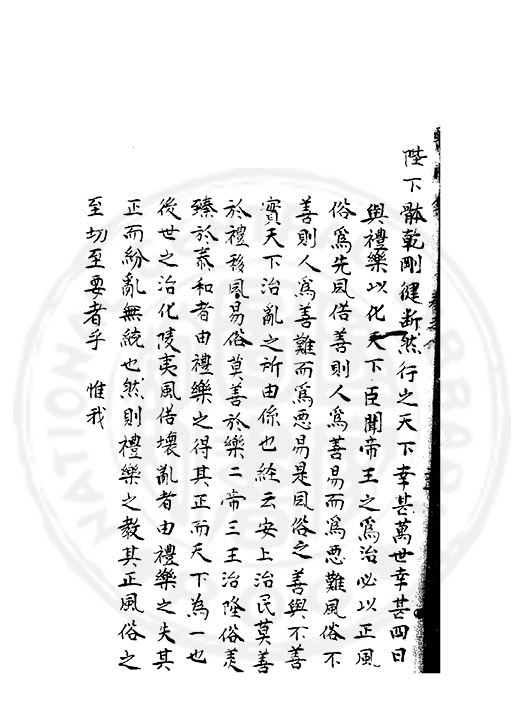 陛下骵乾剛健斷然行之天下幸甚萬世幸甚四曰
興禮樂以化天下臣聞帝王之爲治必以正風
俗爲先風俗善則人爲善易而爲惡難風俗不
善則人爲善難而爲惡易是風俗之善與不善
實天下治亂之所由係也經云安上治民莫善
於禮移風易俗莫善於樂二帝三王治隆俗羙
臻於泰和者由禮樂之得其正而天下為一也
後世之治化陵夷風俗壞亂者由禮樂之失其
正而紛亂無統也然則禮樂之教其正風俗之
至切至要者乎 惟我